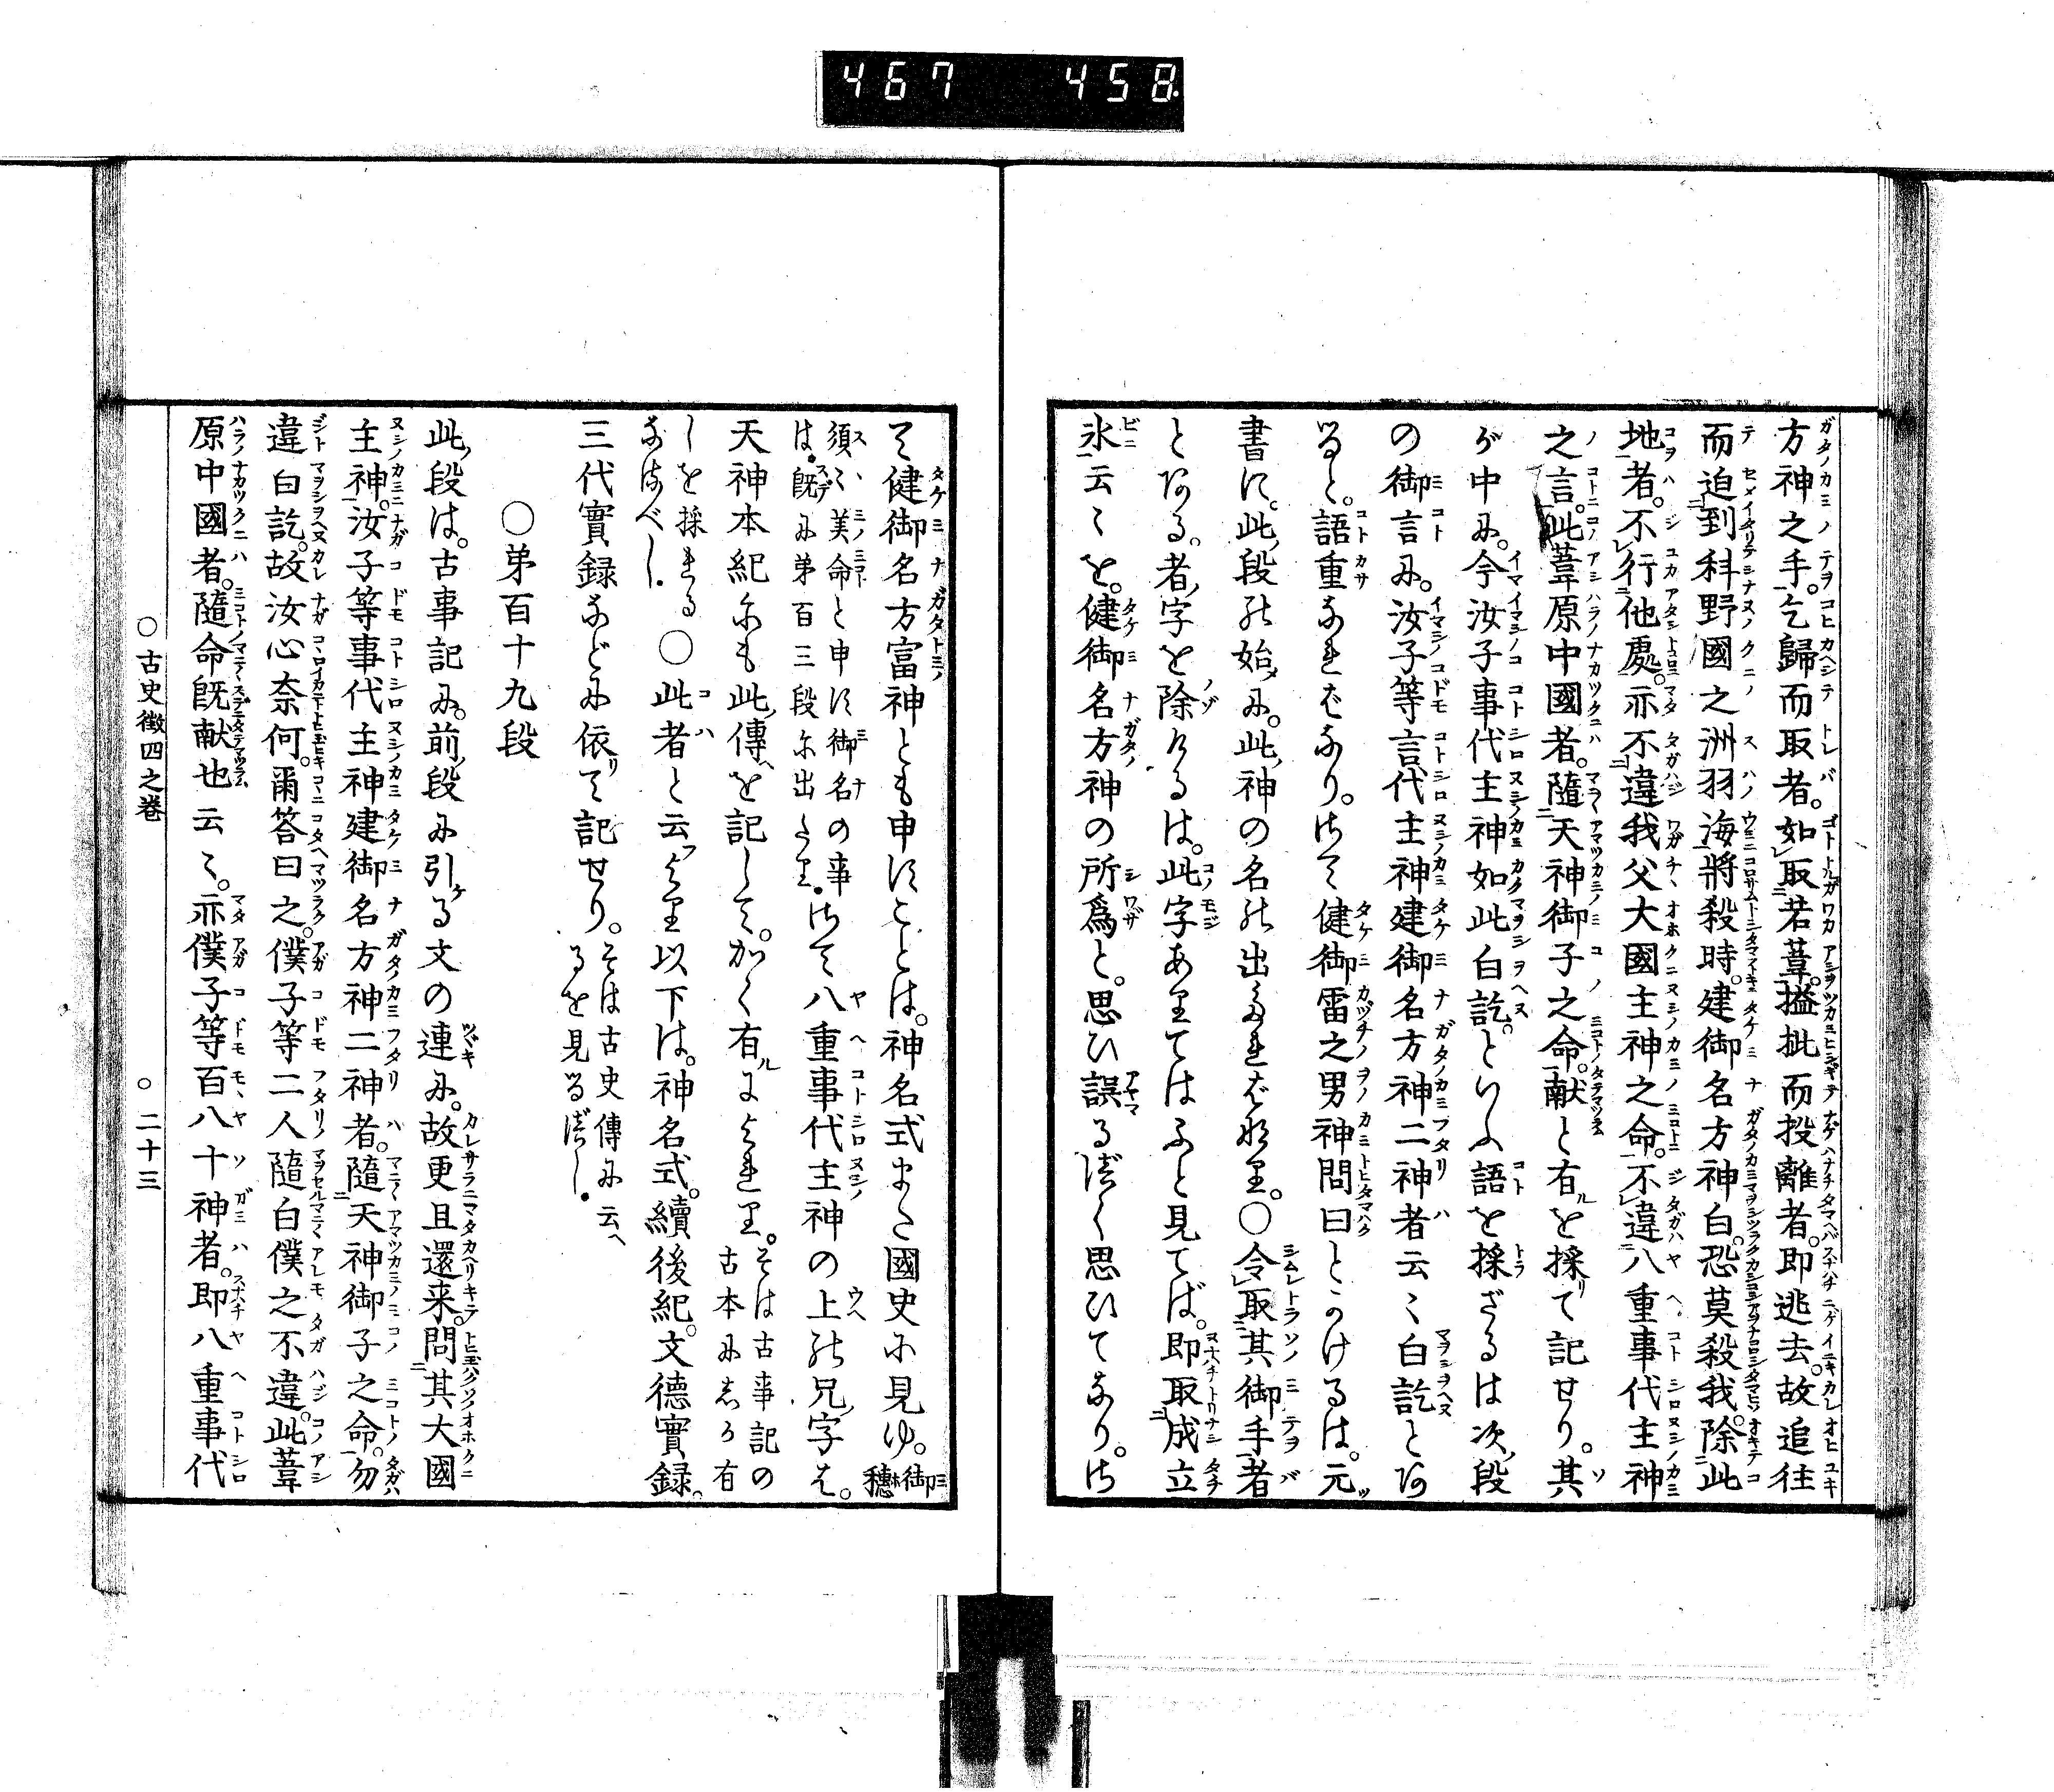 467 458
方神之手。乞歸而取者。如取若葦。搤批而投離者。即逃去。故追往
而迫到科野國之洲羽海將殺時。建御名方神白。恐莫殺我。除此
地者。不行他處。亦不違我父大國主神之命。不違八重事代主神
之言。此葦原中國者。隨天神御子之命献と有ルを採リて記せり。其
が中に。今汝子事代主神如此白訖。といふ語を採ざるは次ノ段
の御言に。汝子等言代主神建御名方神二神者云々白訖とあ
ると。語重なればなり。さて健御雷之男神問曰とかけるは。元ツ
書に。此ノ段の始メに。此ノ神の名の出たればなり。○令取其御手者
とある。者ノ字を除けるは。此字ありてはふと見てば。即取成立
氷云々を。健御名方神の所爲と。思ひ誤るべく思ひてなり。さ
て健御名方富神とも申すことは。神名式また國史に見ゆ。御穗
須々美命と申す御名の事は。既に弟百三段に出たり。さて八重事代主神の上の兄ノ字は。
天神本紀にも此ノ傳ヘを記して。かく有ルによれり。そは古事記の古本にしか有
しを採れるなるべし。○此者と云フより以下は。神名式。續後紀。文德實録。
三代實録などに依リて記せり。そは古史傳に云ヘるを見るべし。
○弟百十九段
此ノ段は。古事記に。前ノ段に引ケる文の連に。故更且還来。問其大國
主神。汝子等事代主神建御名方神二神者。隨天神御子之命。勿
違白訖。故汝心奈何。爾答曰之。僕子等二人隨白僕之不違。此葦
原中國者。隨命既献也云々。亦僕子等百八十神者。即八重事代
○古史徴四之卷 ○二十三